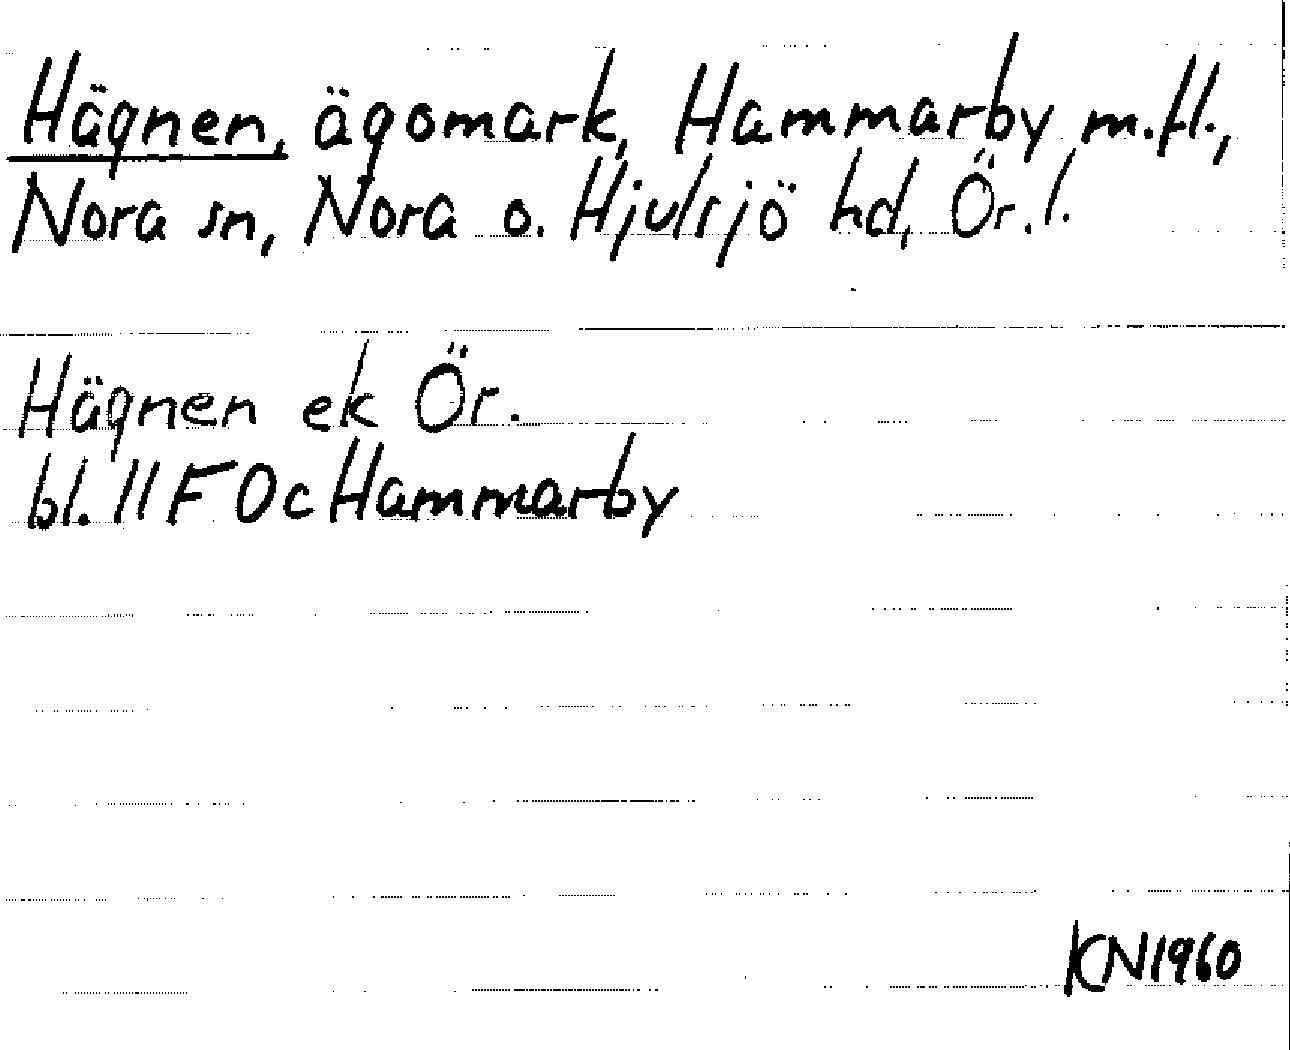 Hägnen, ägomark, Hammarby m.fl.,
Nora sn, Nora o. Hjulsjö hd, Ör. l.
Hägnen ek Ör.
bl. 11F 0c Hammarby
KN1960